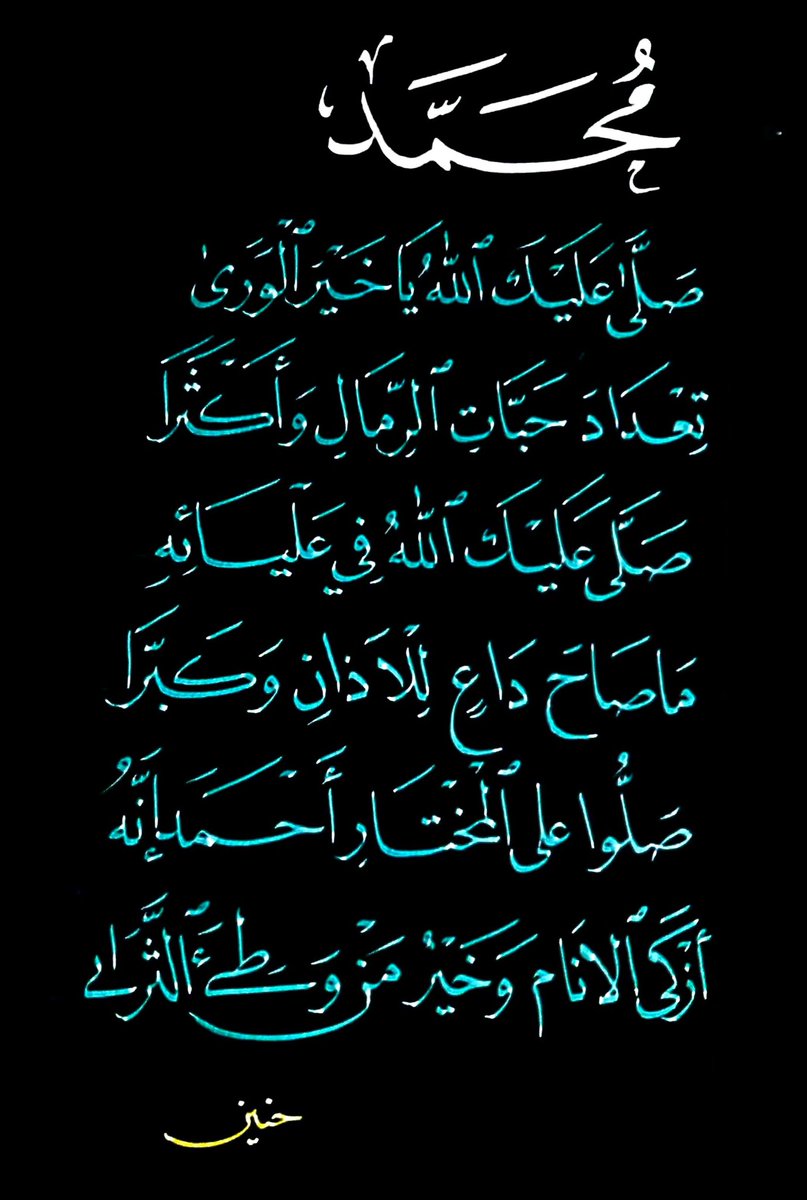 مُحَمَّد
صَلَّىٰ عَلَيْكَ ٱللّٰهُ يَا خَيْرَ ٱلْوَرَىٰ
تِعْدَادَ حَبَّاتِ ٱلرِّمَالِ وَأَكْثَرَا
صَلَّى عَلَيْكَ ٱللّٰهُ فِي عَلْيَائِهِ
مَا صَاحَ دَاعٍ لِلْاَذانِ وَكَبَّرَا
صَلُّوا على ٱلْمُخْتَارِ أَحْمَدَ إِنَّهُ
أَزْكَى ٱلانَام وَخَيْرُ مَنْ وَطِئَ ٱلثَّرَىٰ
حنين